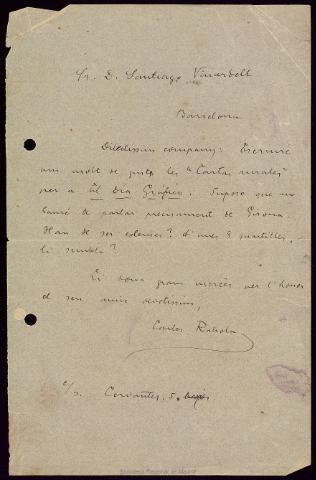 Sr. D. Santiago Vinardell
Barcelona
Distingit company: Escriuré
amb molt de gust les "Cartas rurales"
per a El Dia Gráfico. Suposo que no
hauré de parlar precisament de Girona.
Han de ser extenses? d'unes 8 quartilles,
li sembla?
Li dona grans mercès per l'honor
el seu amic devotíssim,
Carles Rahola
c/s. Cervantes, 5, baixos.
Biblioteca Regional de Madrid